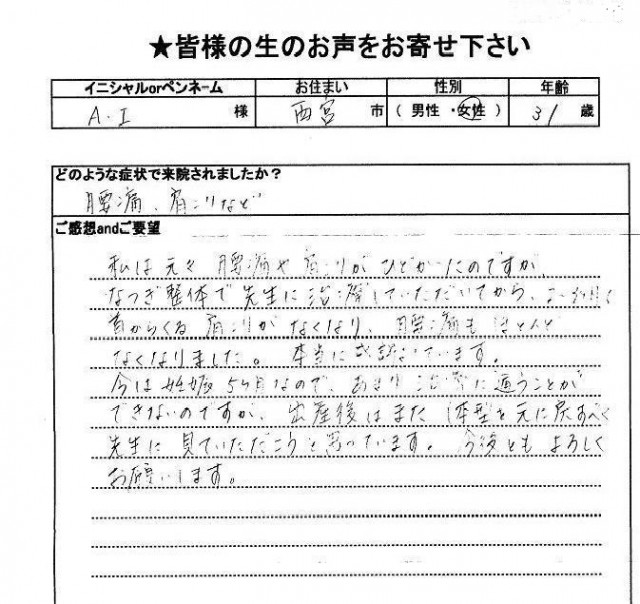 ★皆様の生のお声をお寄せ下さい
イニシャルorペンネーム お住まい 性別 年齢
A.I 様 西宮 市 ( 男性 ・女性 ) 31 歳
どのような症状で来院されましたか？
腰痛、肩こりなど
ご感想andご要望
私は元々腰痛や肩こりがひどかったのですが、
なつぎ整体で先生に治療していただいてから、
首からくる肩こりがなくなり、腰痛もほとんど
なくなりました。本当に感謝しています。
今は妊娠5ヶ月なので、あまり治療に通うことが
できないのですが、出産後はまた体型を元に戻すべく
先生に見ていただこうと思っています。今後ともよろしく
お願いします。